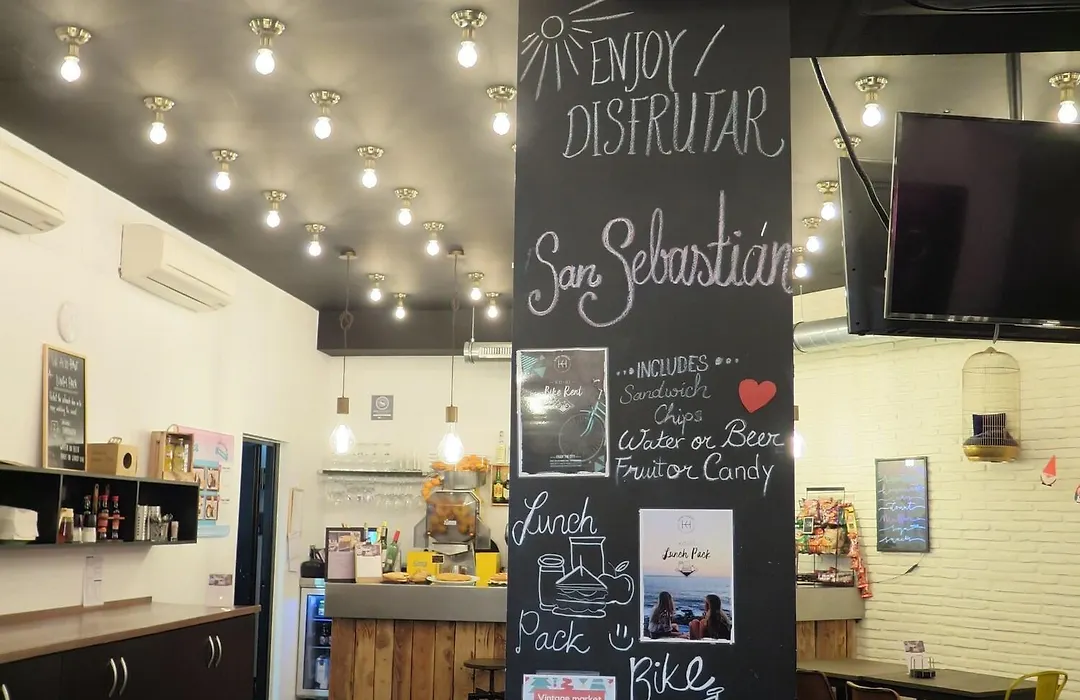 ENJOY /
DISFRUTAR
San Sebastián
Bike Rent
...INCLUDES...
Sandwich
Chips
Water or Beer
Fruit or Candy
Lunch
Pack
Lunch Pack
Bike
Vintage market